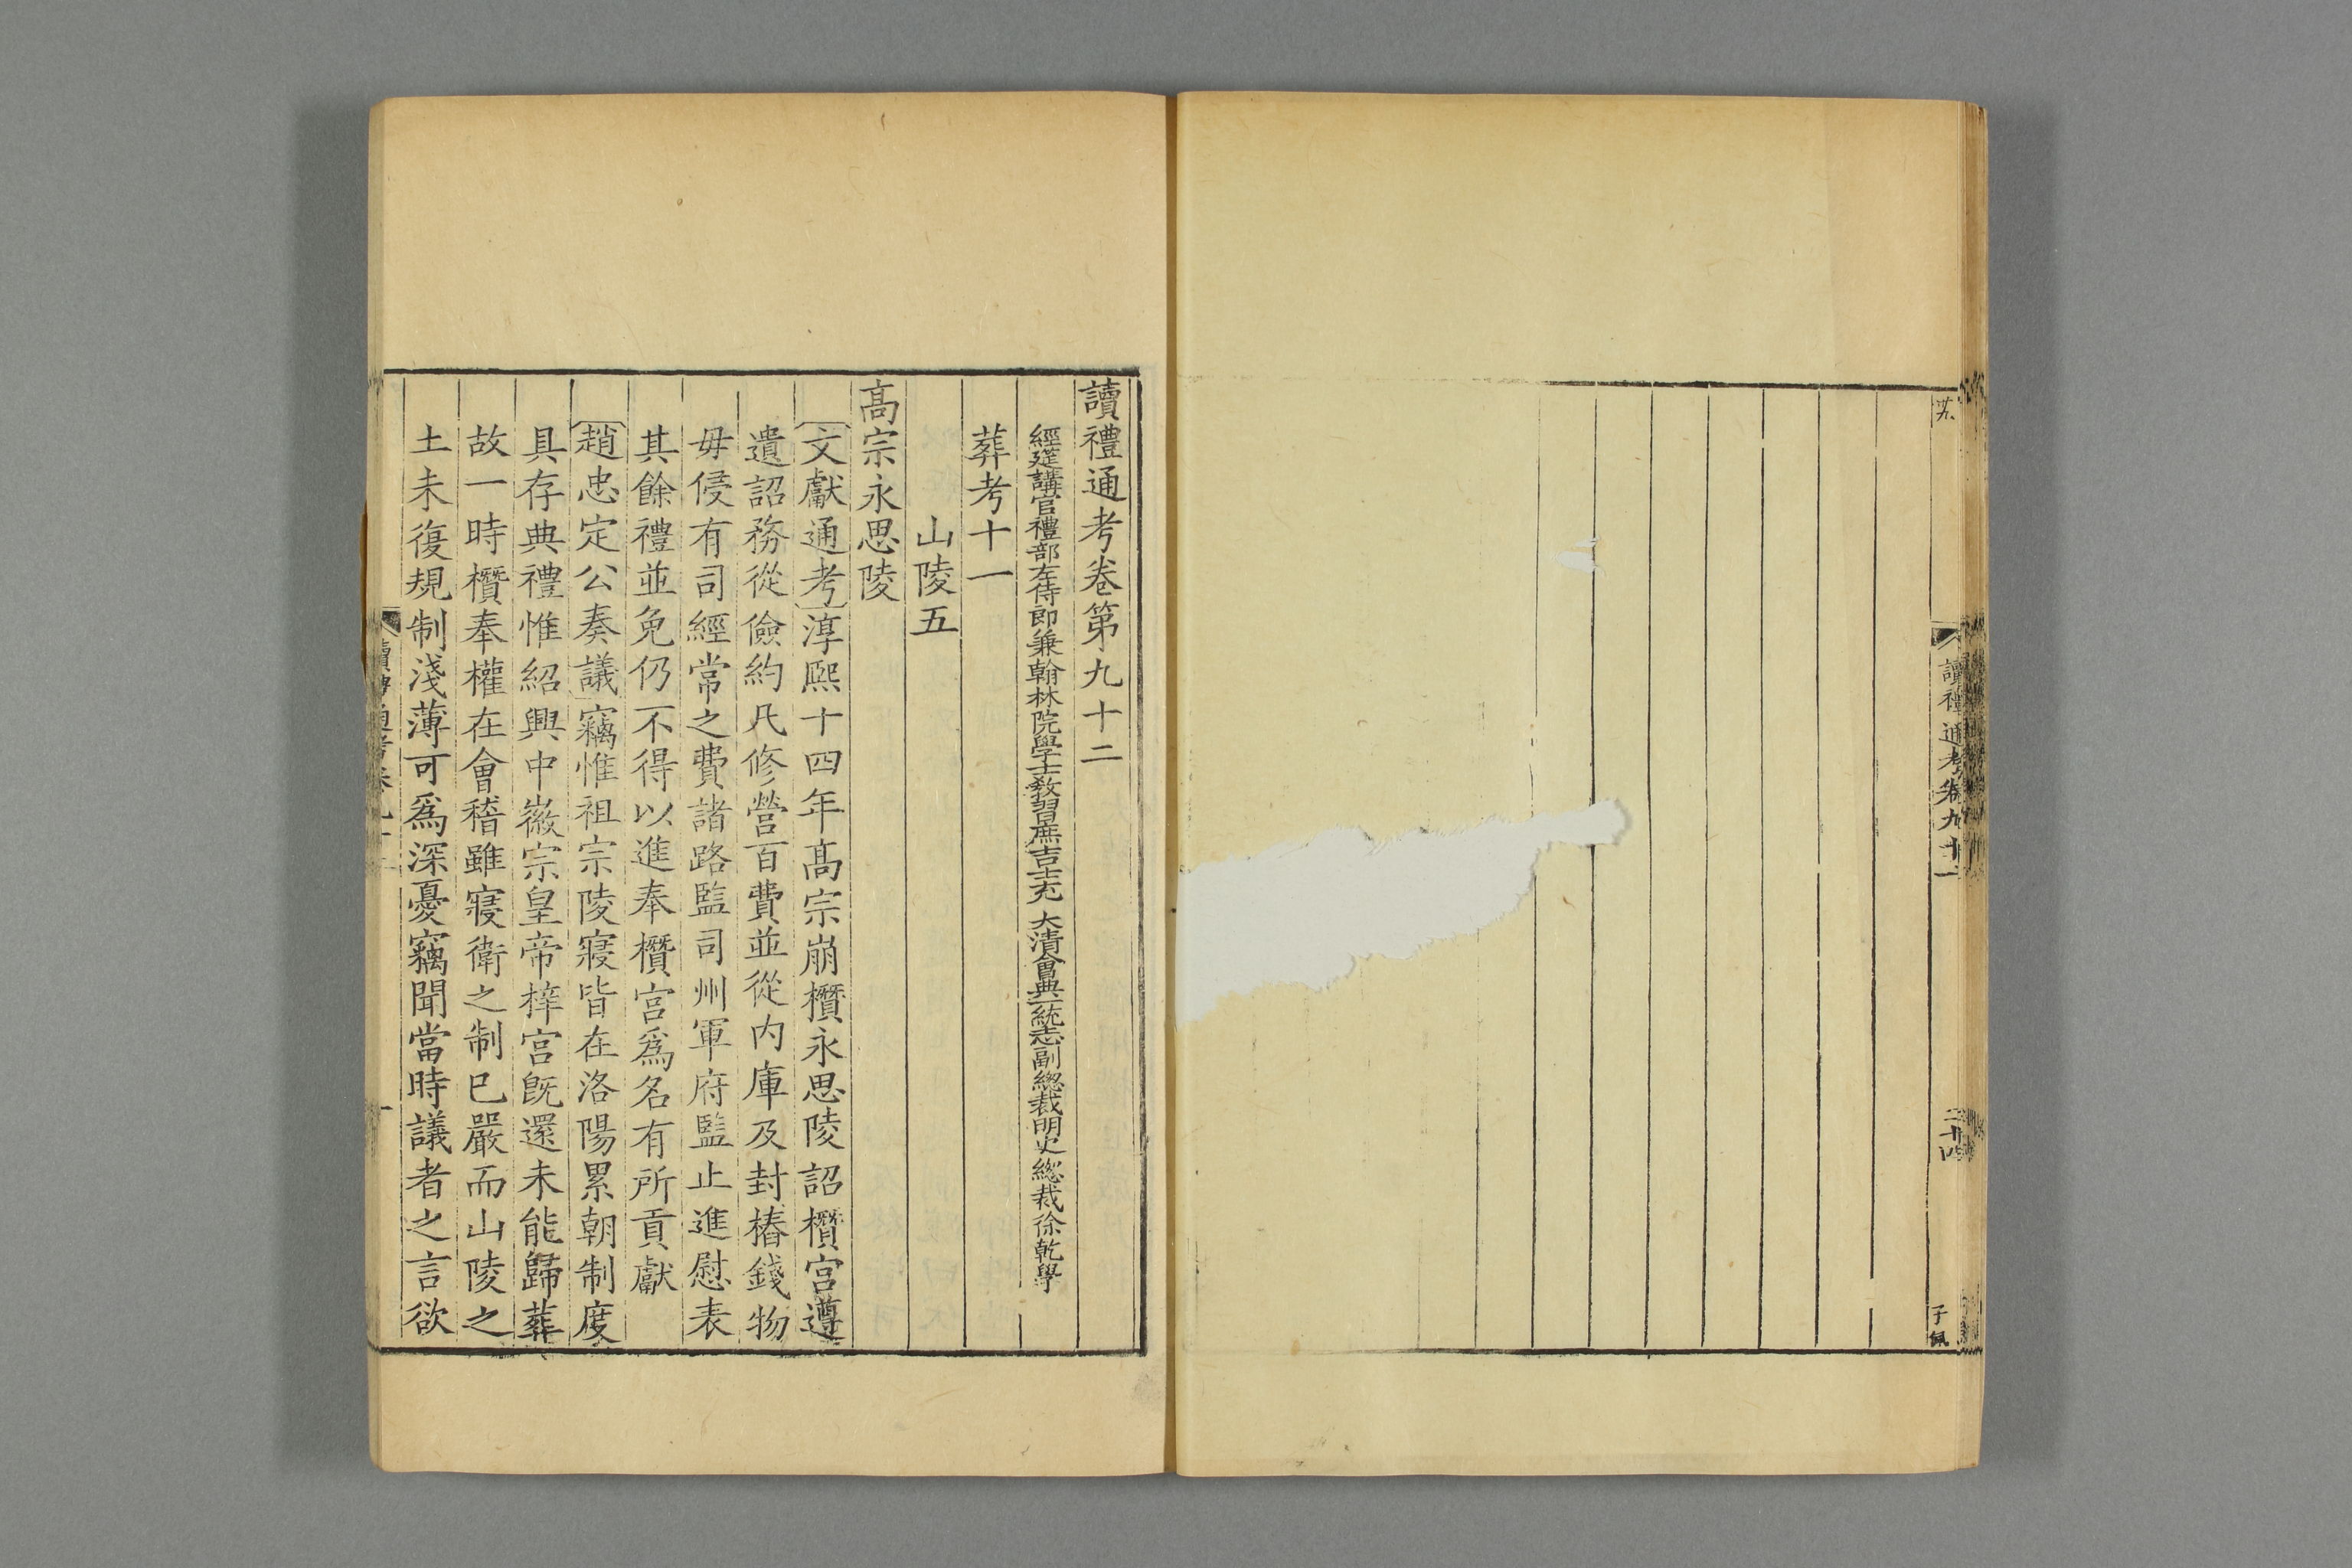 讀禮通考卷九十一
二十四
子佩
讀禮通考卷第九十二
經筵講官禮部左侍郎兼翰林院學士敎習庶吉士充 大清會典一統志副總裁明史總裁徐乾學
葬考十一
山陵五
高宗永思陵
文獻通考淳熙十四年高宗崩欑永思陵詔欑宮遵
遺詔務從儉約凡修營百費並從内庫及封樁錢物
毋侵有司經常之費諸路監司州軍府監止進慰表
其餘禮並免仍不得以進奉欑宮爲名有所貢獻
趙忠定公奏議竊惟祖宗陵寢皆在洛陽累朝制度
具存典禮惟紹興中徽宗皇帝梓宮旣還未能歸葬
故一時欑奉權在會稽雖寢衛之制已嚴而山陵之
土未復規制淺薄可爲深憂竊聞當時議者之言欲
讀禮通考卷九十二
一